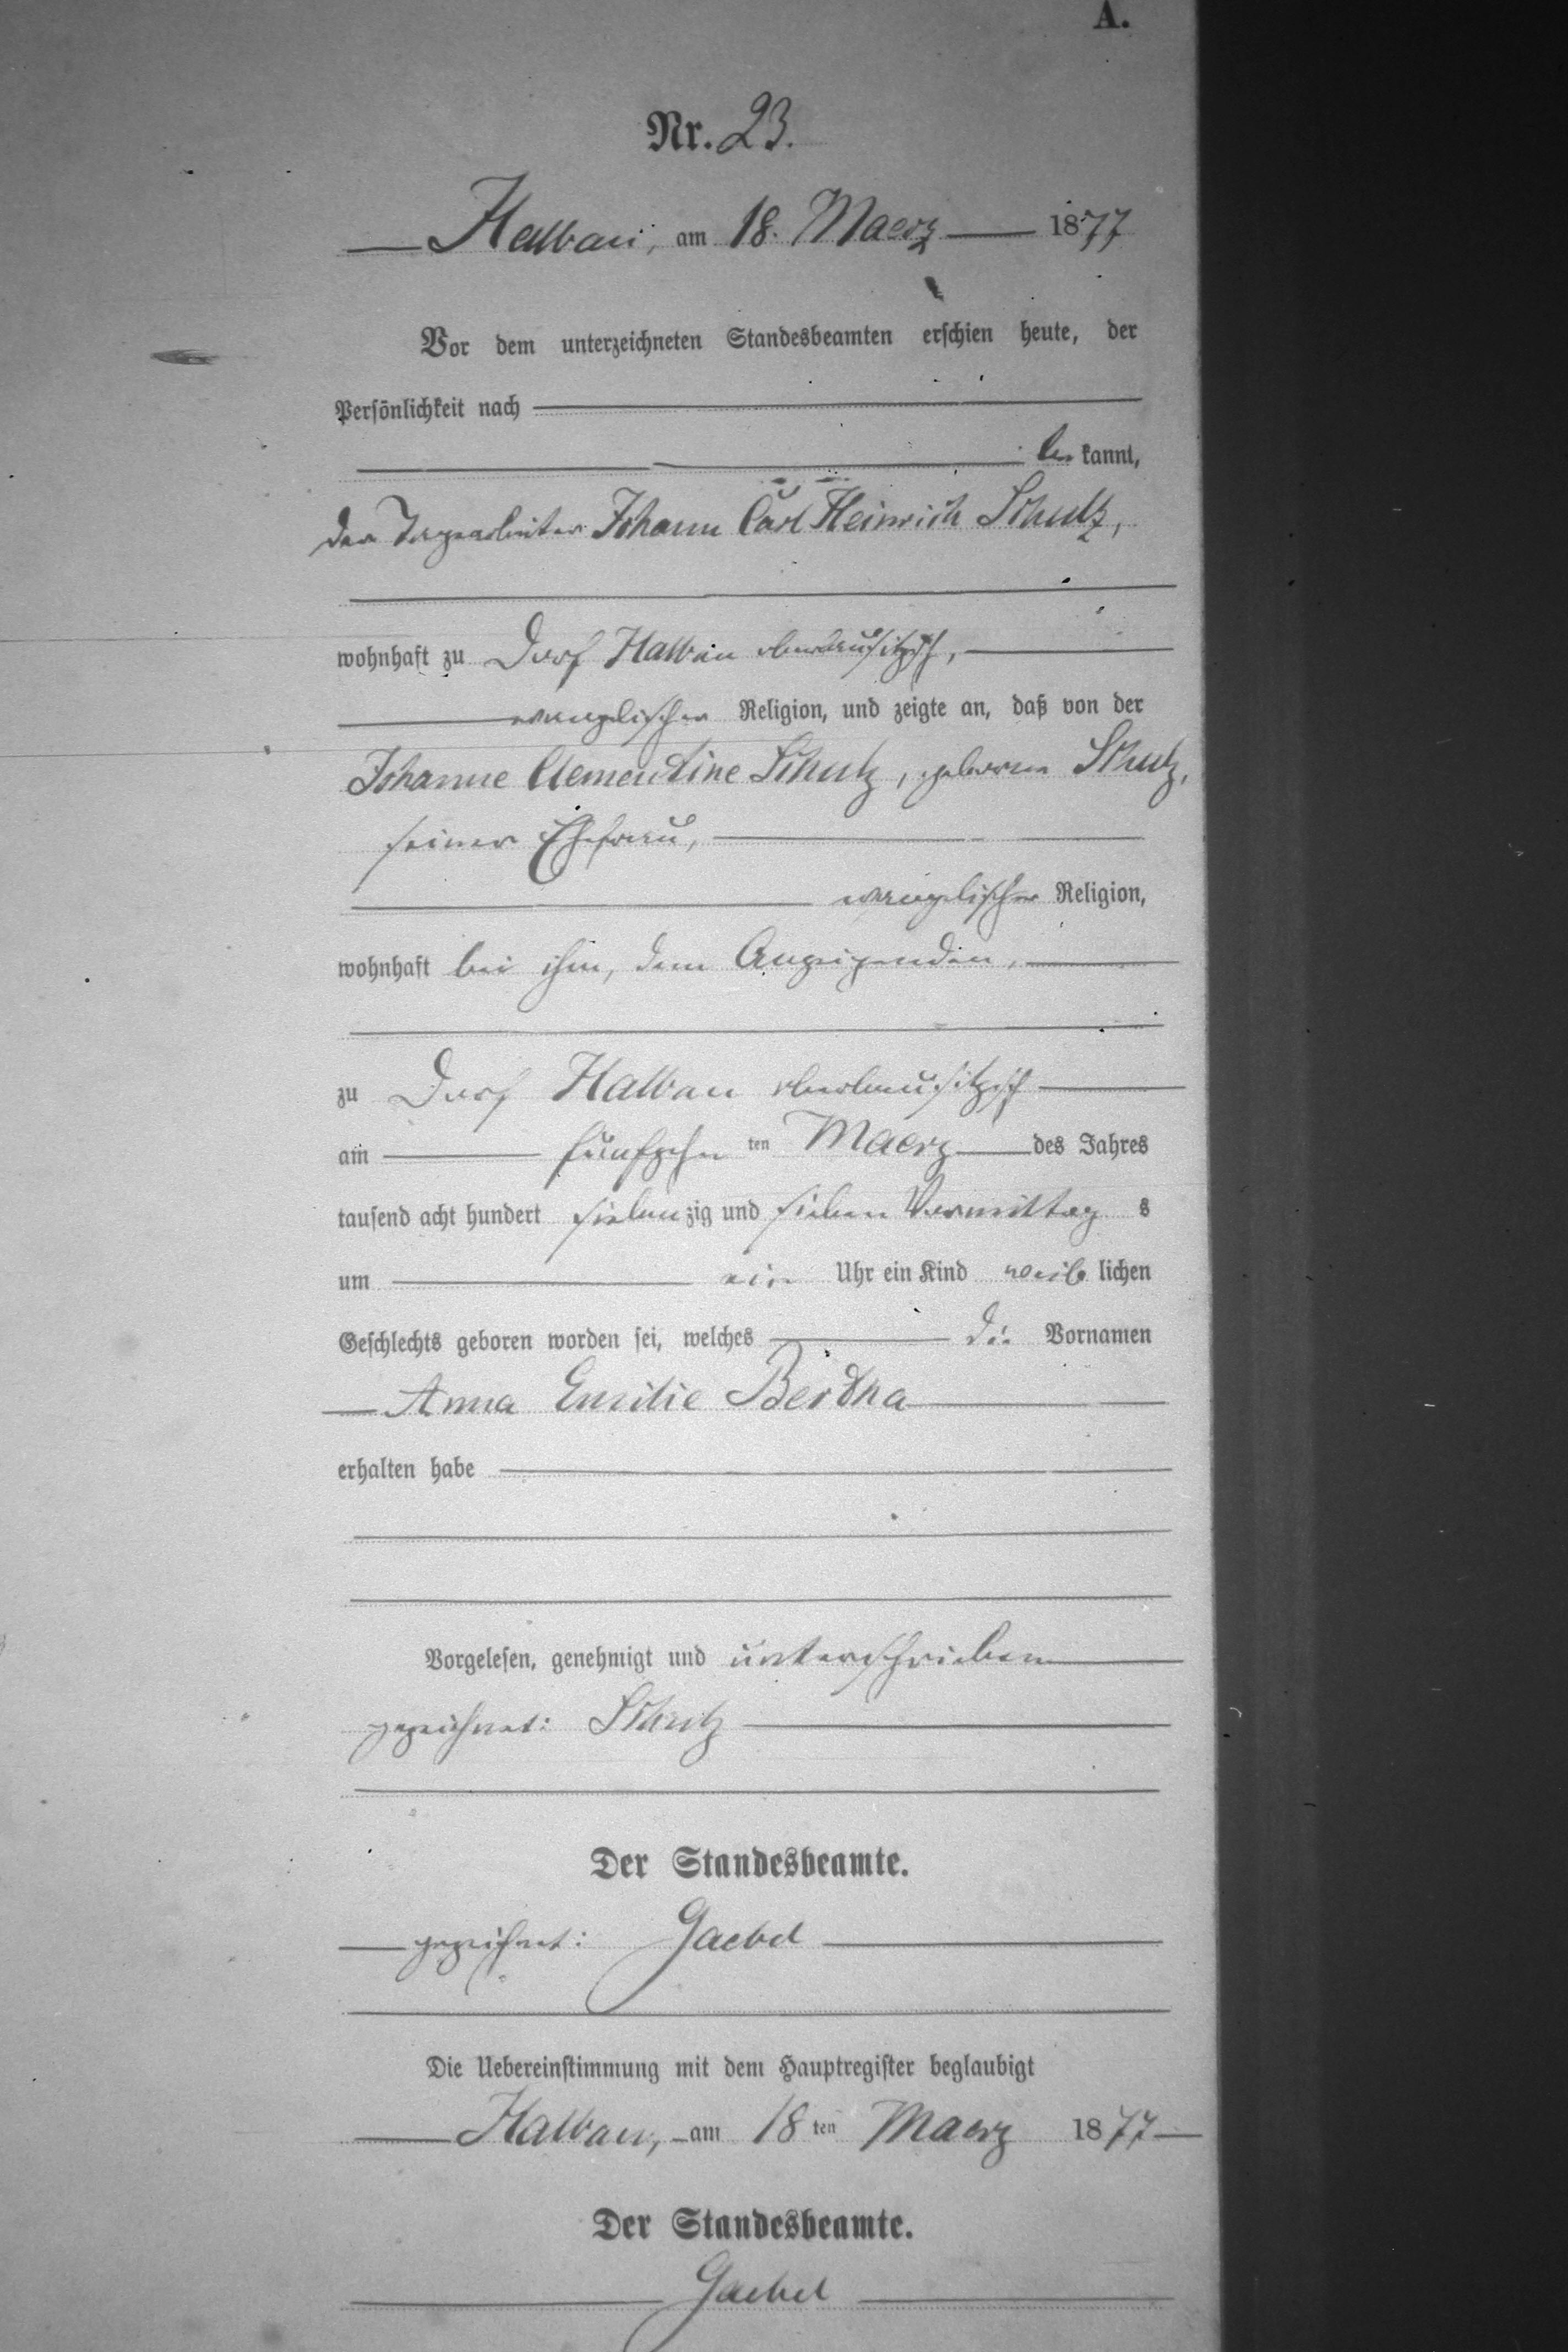 A.
Nr. 23.
Halbau, am 18. Maerz 1877
Vor dem unterzeichneten Standesbeamten erschien heute, der
Persönlichkeit nach
be kannt,
der Tagearbeiter Johann Carl Heinrich Schulz,
wohnhaft zu Dorf Halbau oberlausitzisch,
evangelischer Religion, und zeigte an, daß von der
Johanne Clementine Schulz, geborne Schulz,
seiner Ehefrau,
evangelischer Religion,
wohnhaft bei ihm, dem Anzeigenden,
zu Dorf Halbau oberlausitzisch
am fünfzehn ten Maerz des Jahres
tausend acht hundert sieben zig und sieben Vormittag s
um ein Uhr ein Kind weib lichen
Geschlechts geboren worden sei, welches die Vornamen
Anna Emilie Bertha
erhalten habe
Vorgelesen, genehmigt und unterschrieben
gezeichnet: Schulz
Der Standesbeamte.
gezeichnet: Gaebel
Die Uebereinstimmung mit dem Hauptregister beglaubigt
Halbau, am 18 ten Maerz 1877
Der Standesbeamte.
Gaebel